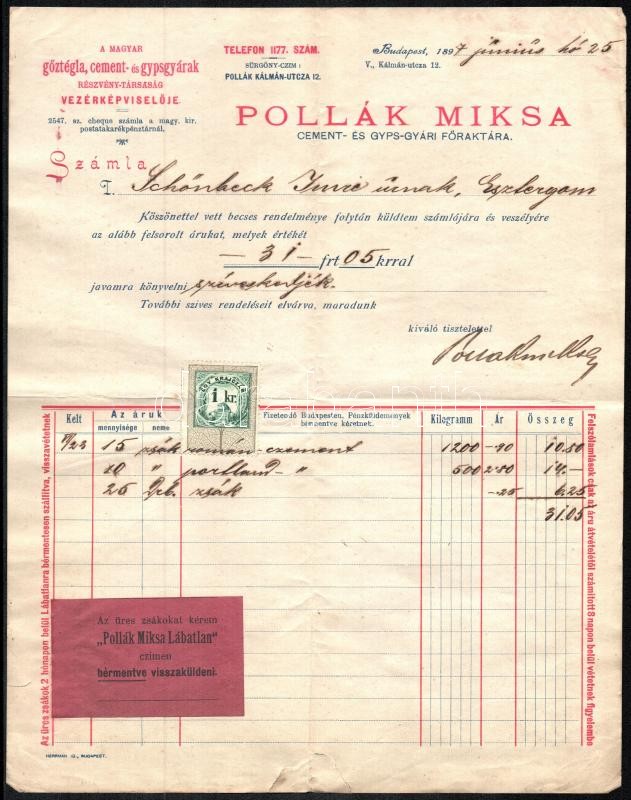 A MAGYAR
gőztégla, cement- és gypsgyárak
RÉSZVÉNY-TÁRSASÁG
VEZÉRKÉPVISELŐJE.
2547. sz. cheque számla a magy. kir.
postatakarékpénztárnál.
TELEFON 1177. SZÁM.
SÜRGÖNY-CZIM:
POLLÁK KÁLMÁN-UTCZA 12.
Budapest, 1897 június hó 25
V., Kálmán-utcza 12.
POLLÁK MIKSA
CEMENT- ÉS GYPS-GYÁRI FŐRAKTÁRA.
Számla
T. Schönbeck Imre úrnak, Esztergom
Köszönettel vett becses rendelménye folytán küldtem számlájára és veszélyére
az alább felsorolt árukat, melyek értékét
—31— frt 05 krral
javamra könyvelni szíveskedjék.
További szives rendeléseit elvárva, maradunk
kiváló tisztelettel
Pollák Miksa
EGY KRAJCZÁR
1 kr.
Kelt Az áruk mennyisége neme Fizetendő Budapesten, Pénzküldemények bérmentve kéretnek. Kilogramm Ár Összeg
15 zsák román-czement 1200 —90 10.80
10 " portland- " 500 2.80 14.—
25 Drb. zsák —25 6.25
31.05
Az üres zsákok 2 hónapon belül Lábatlanra bérmentesen szállitva, visszavétetnek
Felszólamlások csak az áru átvételétől számitott 8 napon belül vétetnek figyelembe
Az üres zsákokat kérem
„Pollák Miksa Lábatlan"
czimen
bérmentve visszaküldeni.
HERRMAN IG., BUDAPEST.